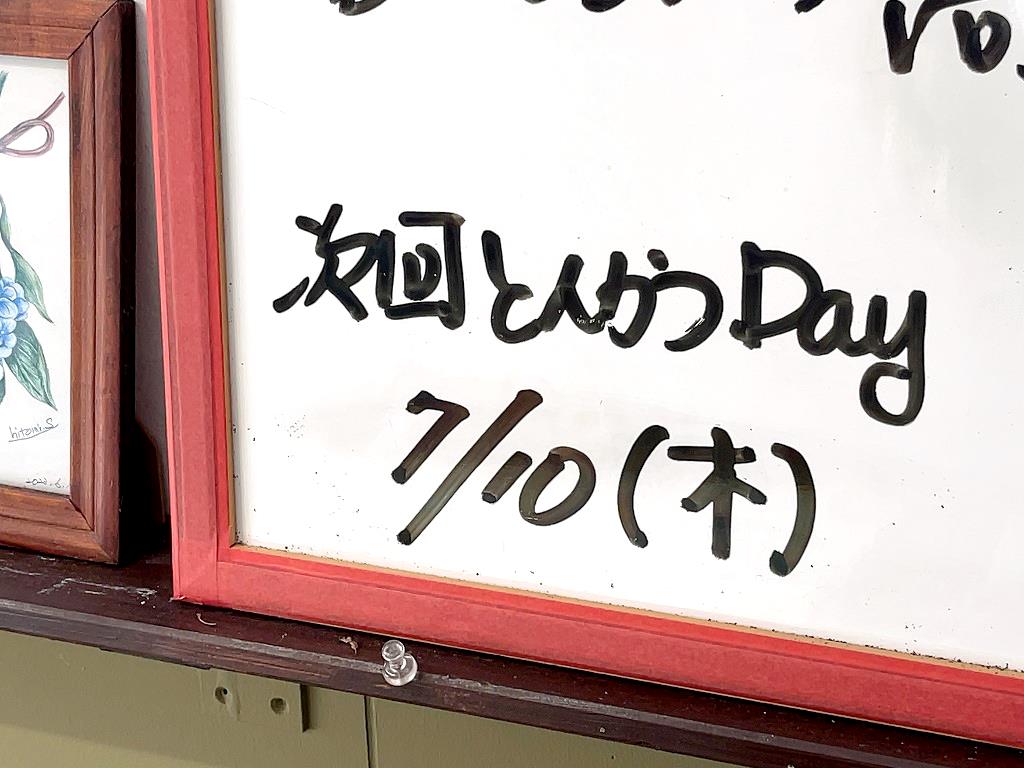 次回とんかつDay
7/10(木)
hitomi.S